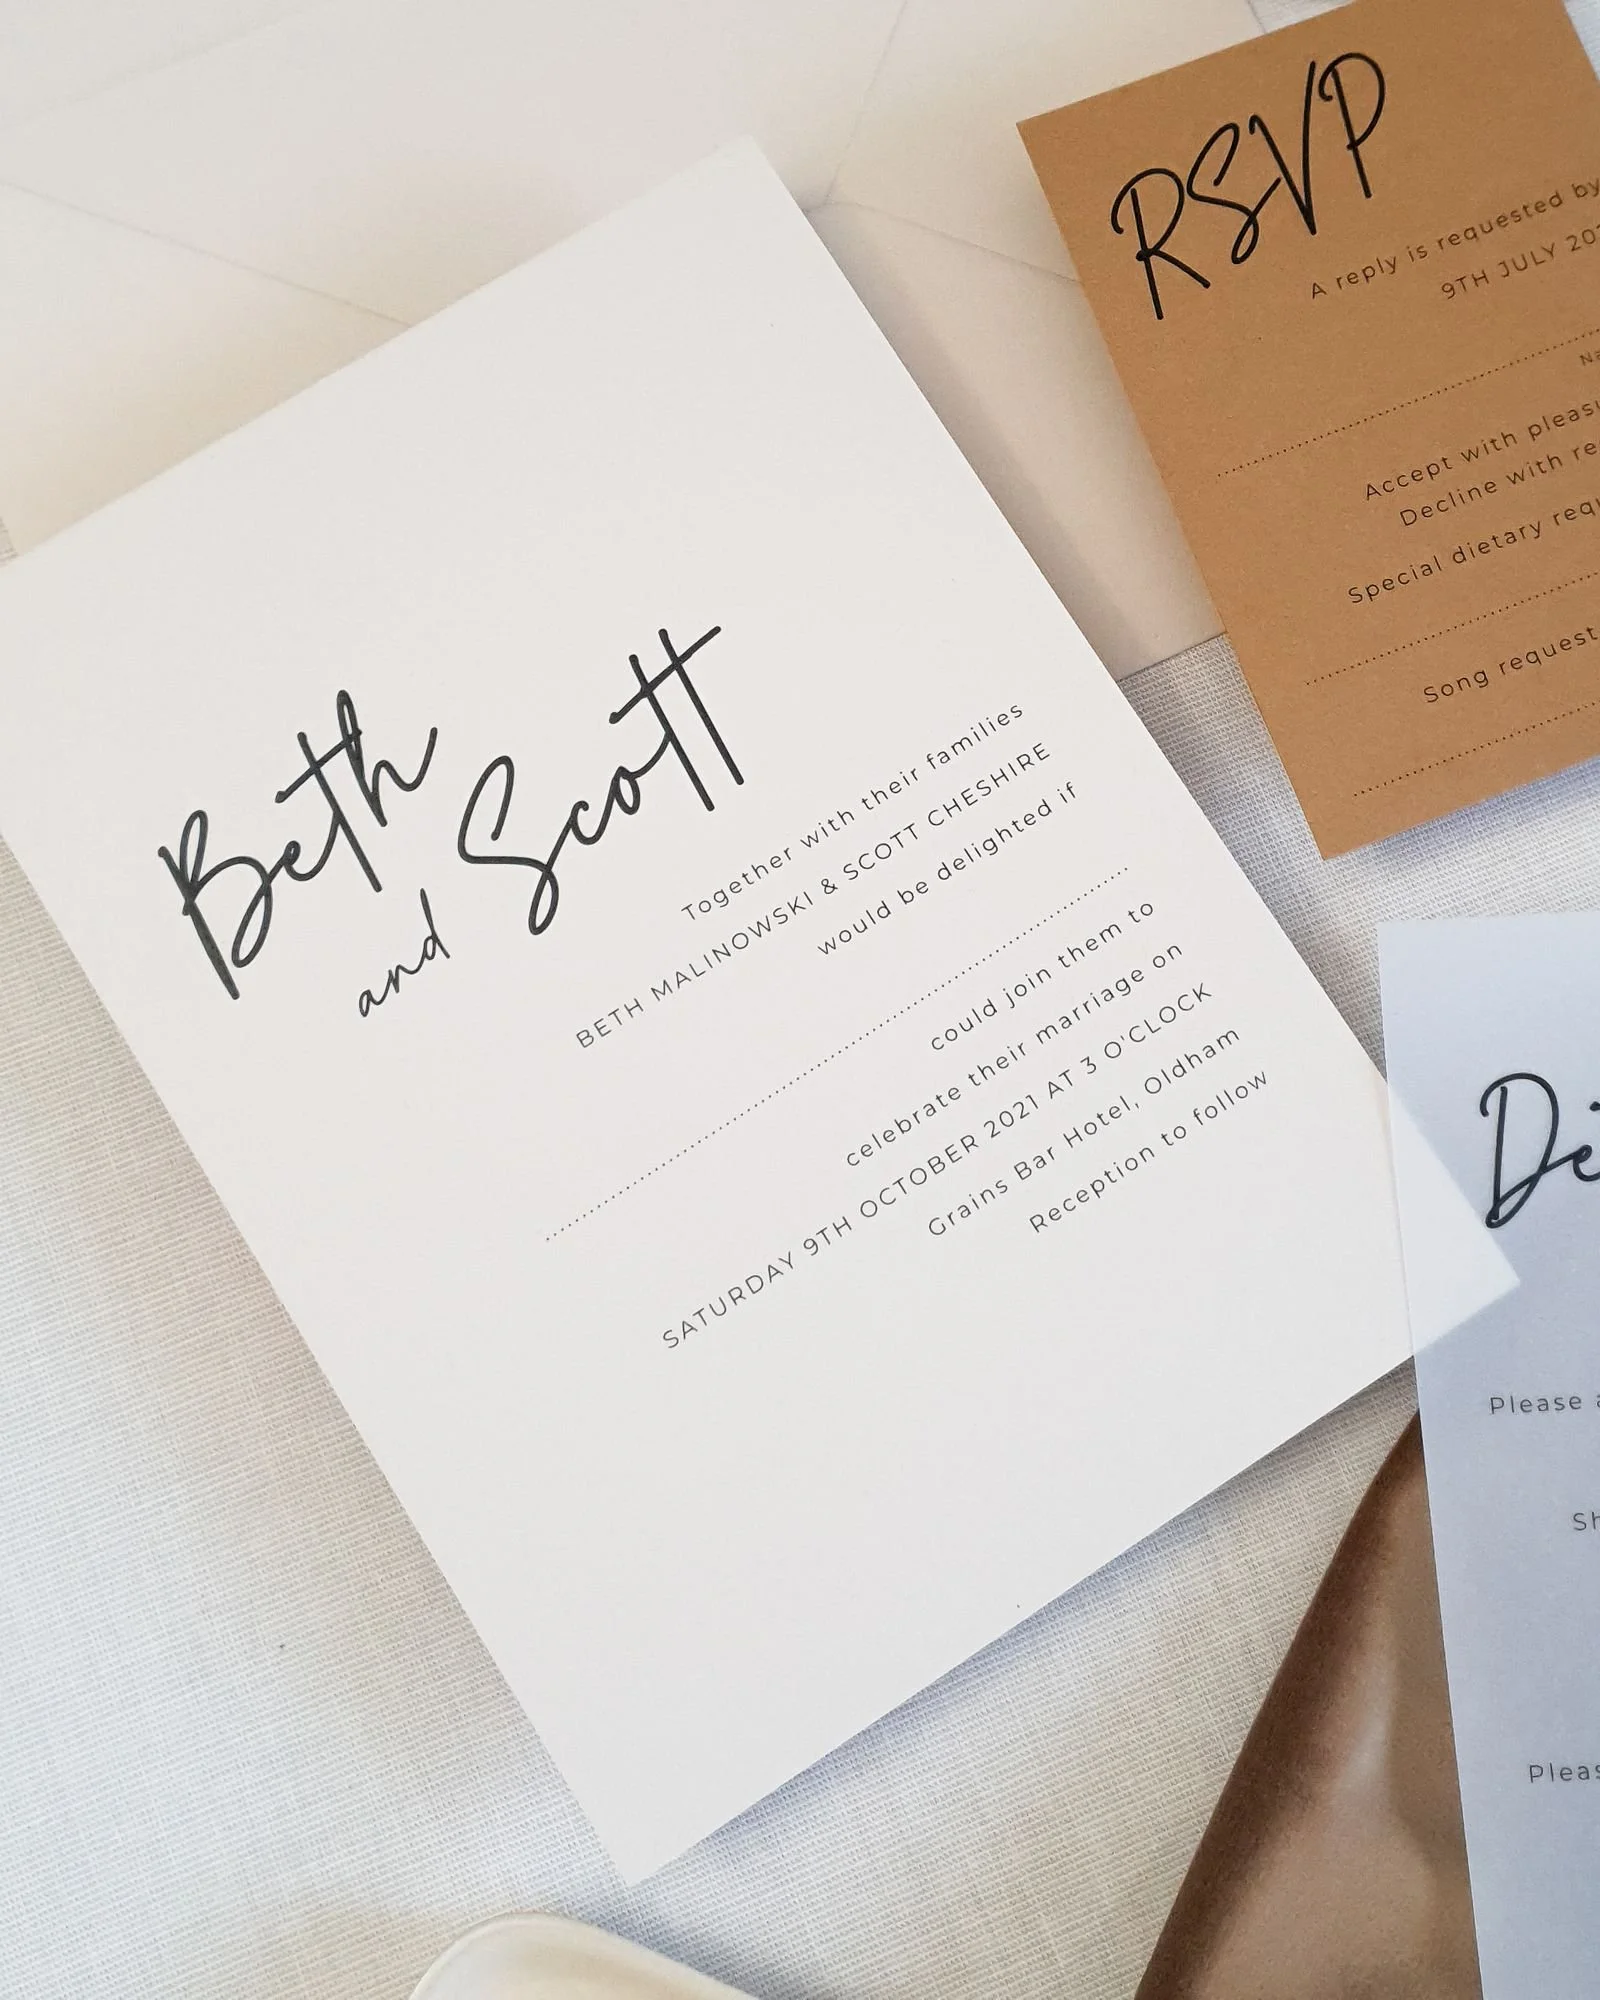 Beth
and Scott
Together with their families
BETH MALINOWSKI & SCOTT CHESHIRE
would be delighted if
could join them to
celebrate their marriage on
SATURDAY 9TH OCTOBER 2021 AT 3 O'CLOCK
Grains Bar Hotel, Oldham
Reception to follow
RSVP
A reply is requested by
9TH JULY
Accept with
Decline with
Special dietary
Song request
Please